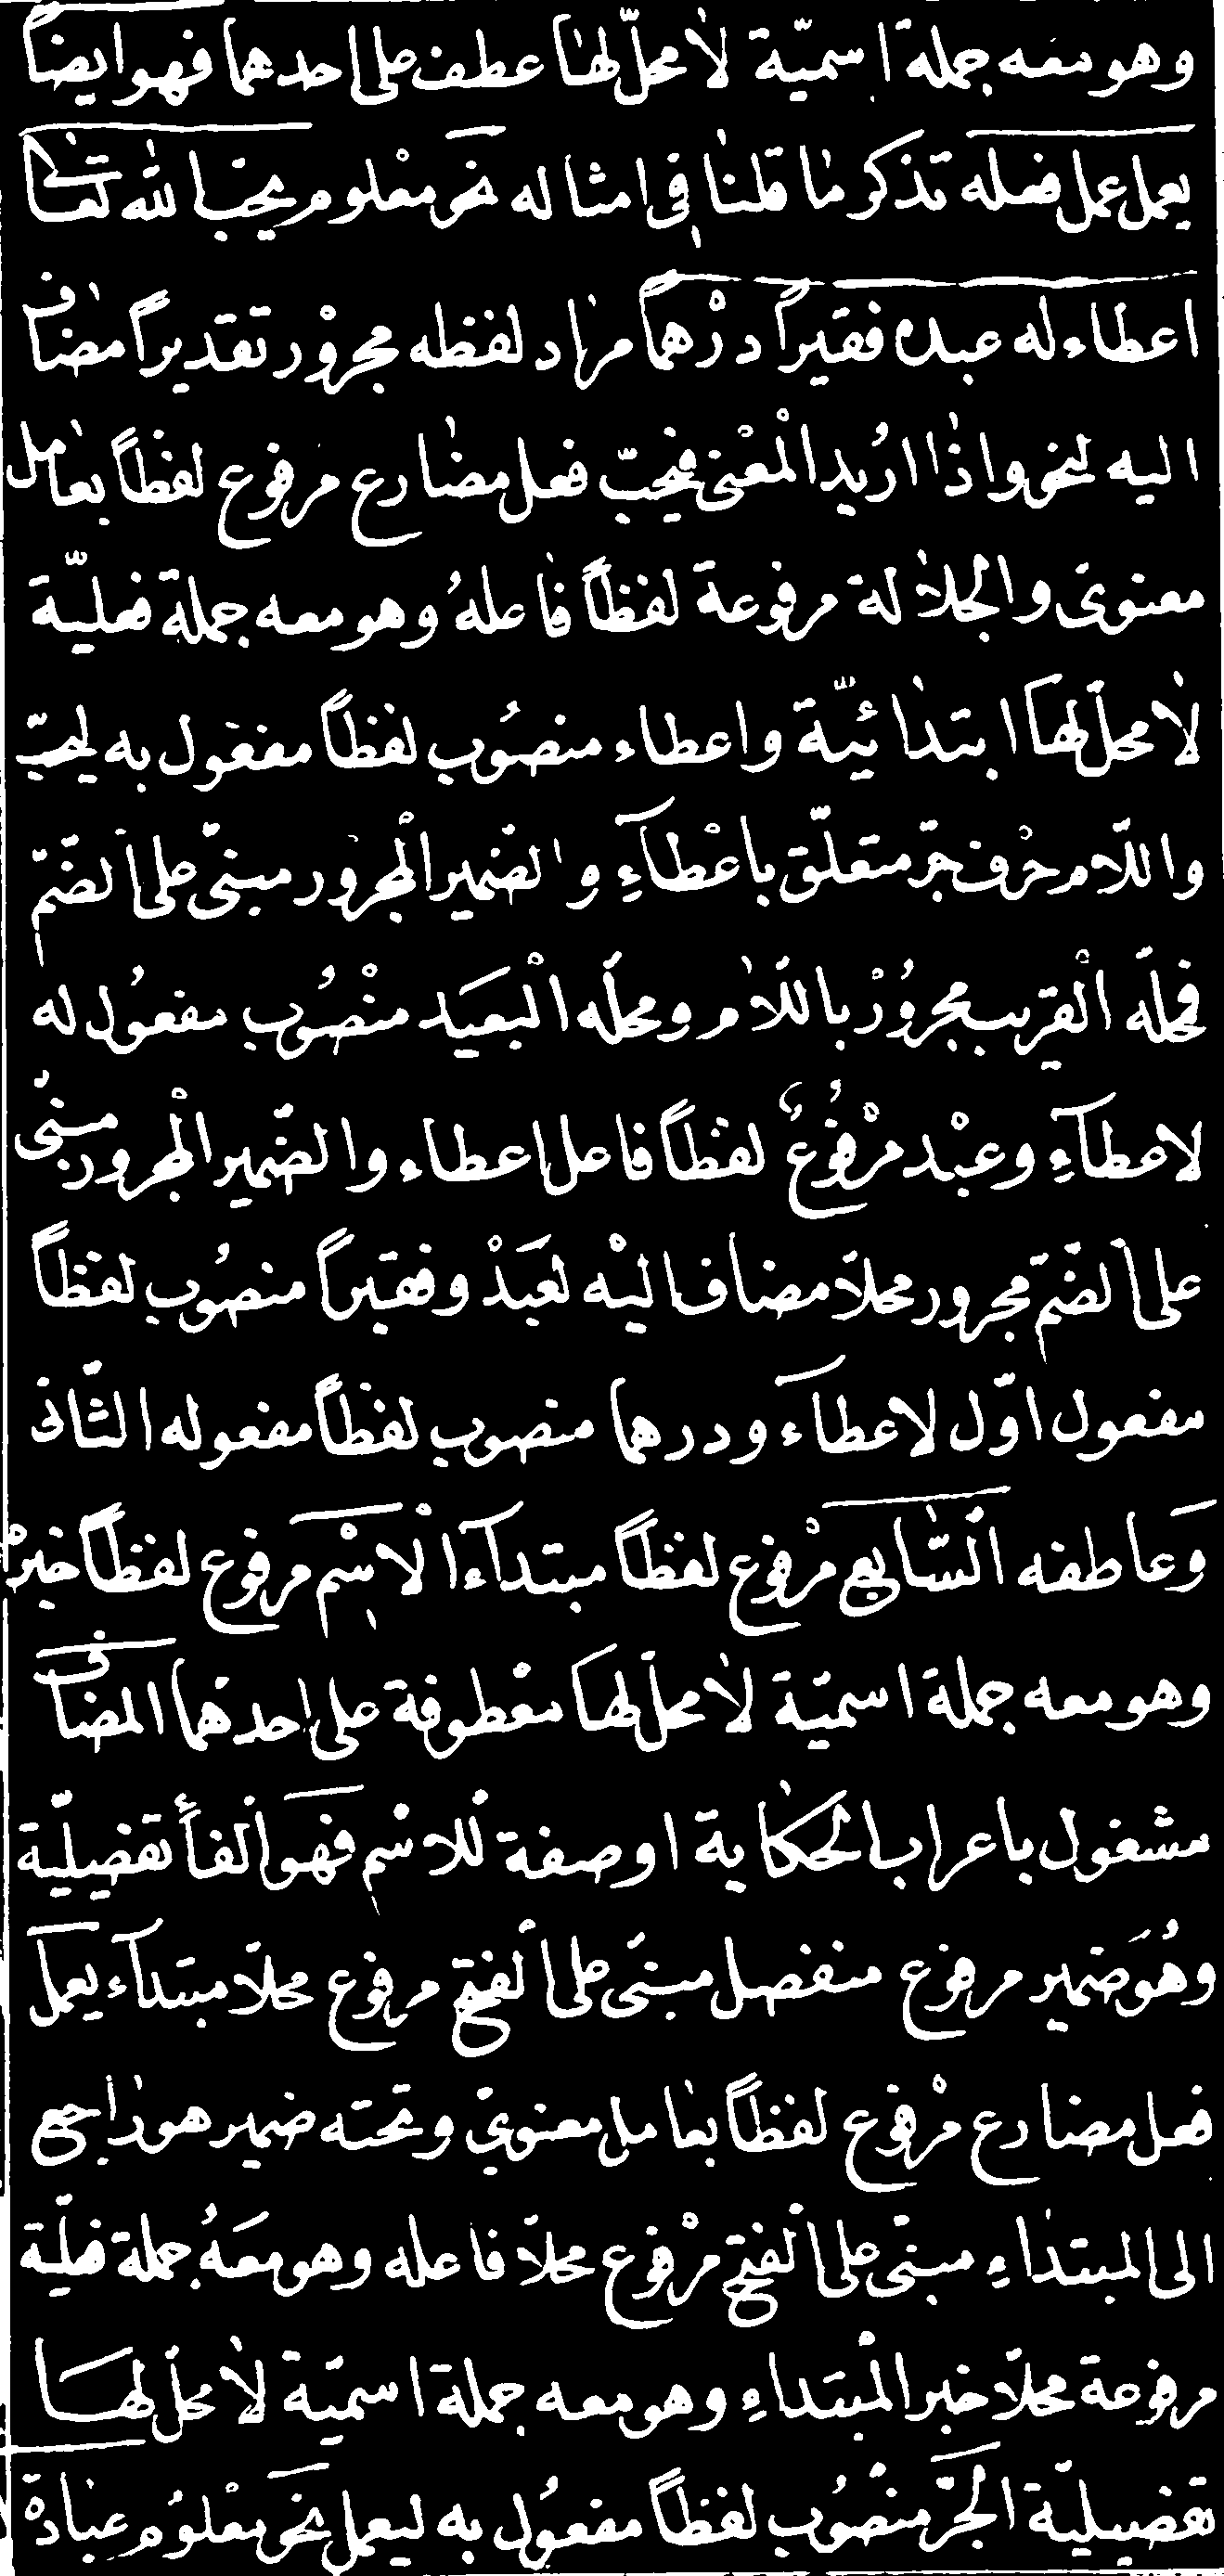 وهو معه جملة اسميّة لا محلّ لها عطف على احدهما فهو ايضاً
يعمل عمل فعله تذكر ما قلنا فى امثاله نحو معلوم يحبّ الله تعالى
اعطاء له عبده فقيراً درْهماً مراد لفظه مجروْر تقديراً مضاف
اليه لنحو واذا اُريد الْمعْنى فيحبّ فعل مضارع مرفوع لفظاً بعامل
معنوى والجلالة مرفوعة لفظاً فاعلهُ وهو معه جملة فعليّة
لا محلّ لها ابتدائيّة واعطاء منصُوب لفظاً مفعول به ليحبّ
واللّام حرْف جرّ متعلّق باعْطآءِ والضمير الْمجرور مبنىّ على الضّمّ
فمحلّه الْقريب مجرُوْر باللّام ومحلّه الْبعيَد منْصُوب مفعُول له
لاعطآءِ وعبْد مرْفُوعٌ لفظاً فاعل اعطاء والضّمير الْمجرور مبنى
على الضّمّ مجرور محلاّ مضاف اليْه لعَبَدْ وفقيراً منصُوب لفظاً
مفعول اوّل لاعطآء ودرهما منصوب لفظاً مفعوله الثّانى
وَعاطفه السّابع مرْفوع لفظاً مبتدآء الْاسْم مرفوع لفظاً خبرْ
وهو معه جملة اسميّة لا محلّ لها معْطوفة على احدهما المضاف
مشغول باعراب الحكاية او صفة للاسْم فهَو الْفأ تفضيليّة
وهُوَ ضمير مرفوع منفصل مبنىّ على الْفتح مرفوع محلاّ مبتدآء يعمل
فعل مضارع مرْفوع لفظاً بعامل معنوىّ وتحته ضمير هو راجع
الى المبتداءِ مبنىّ على الْفتح مرْفوع محلاّ فاعله وهو معَهُ جملة فعليّة
مرفوعة محلاّ خبر الْمبتداءِ وهو معه جملة اسميّة لا محلّ لهَا
تفضيليّة الْجَرّ منصُوب لفظاً مفعُول به ليعمل نحَو معْلوُم عبادة